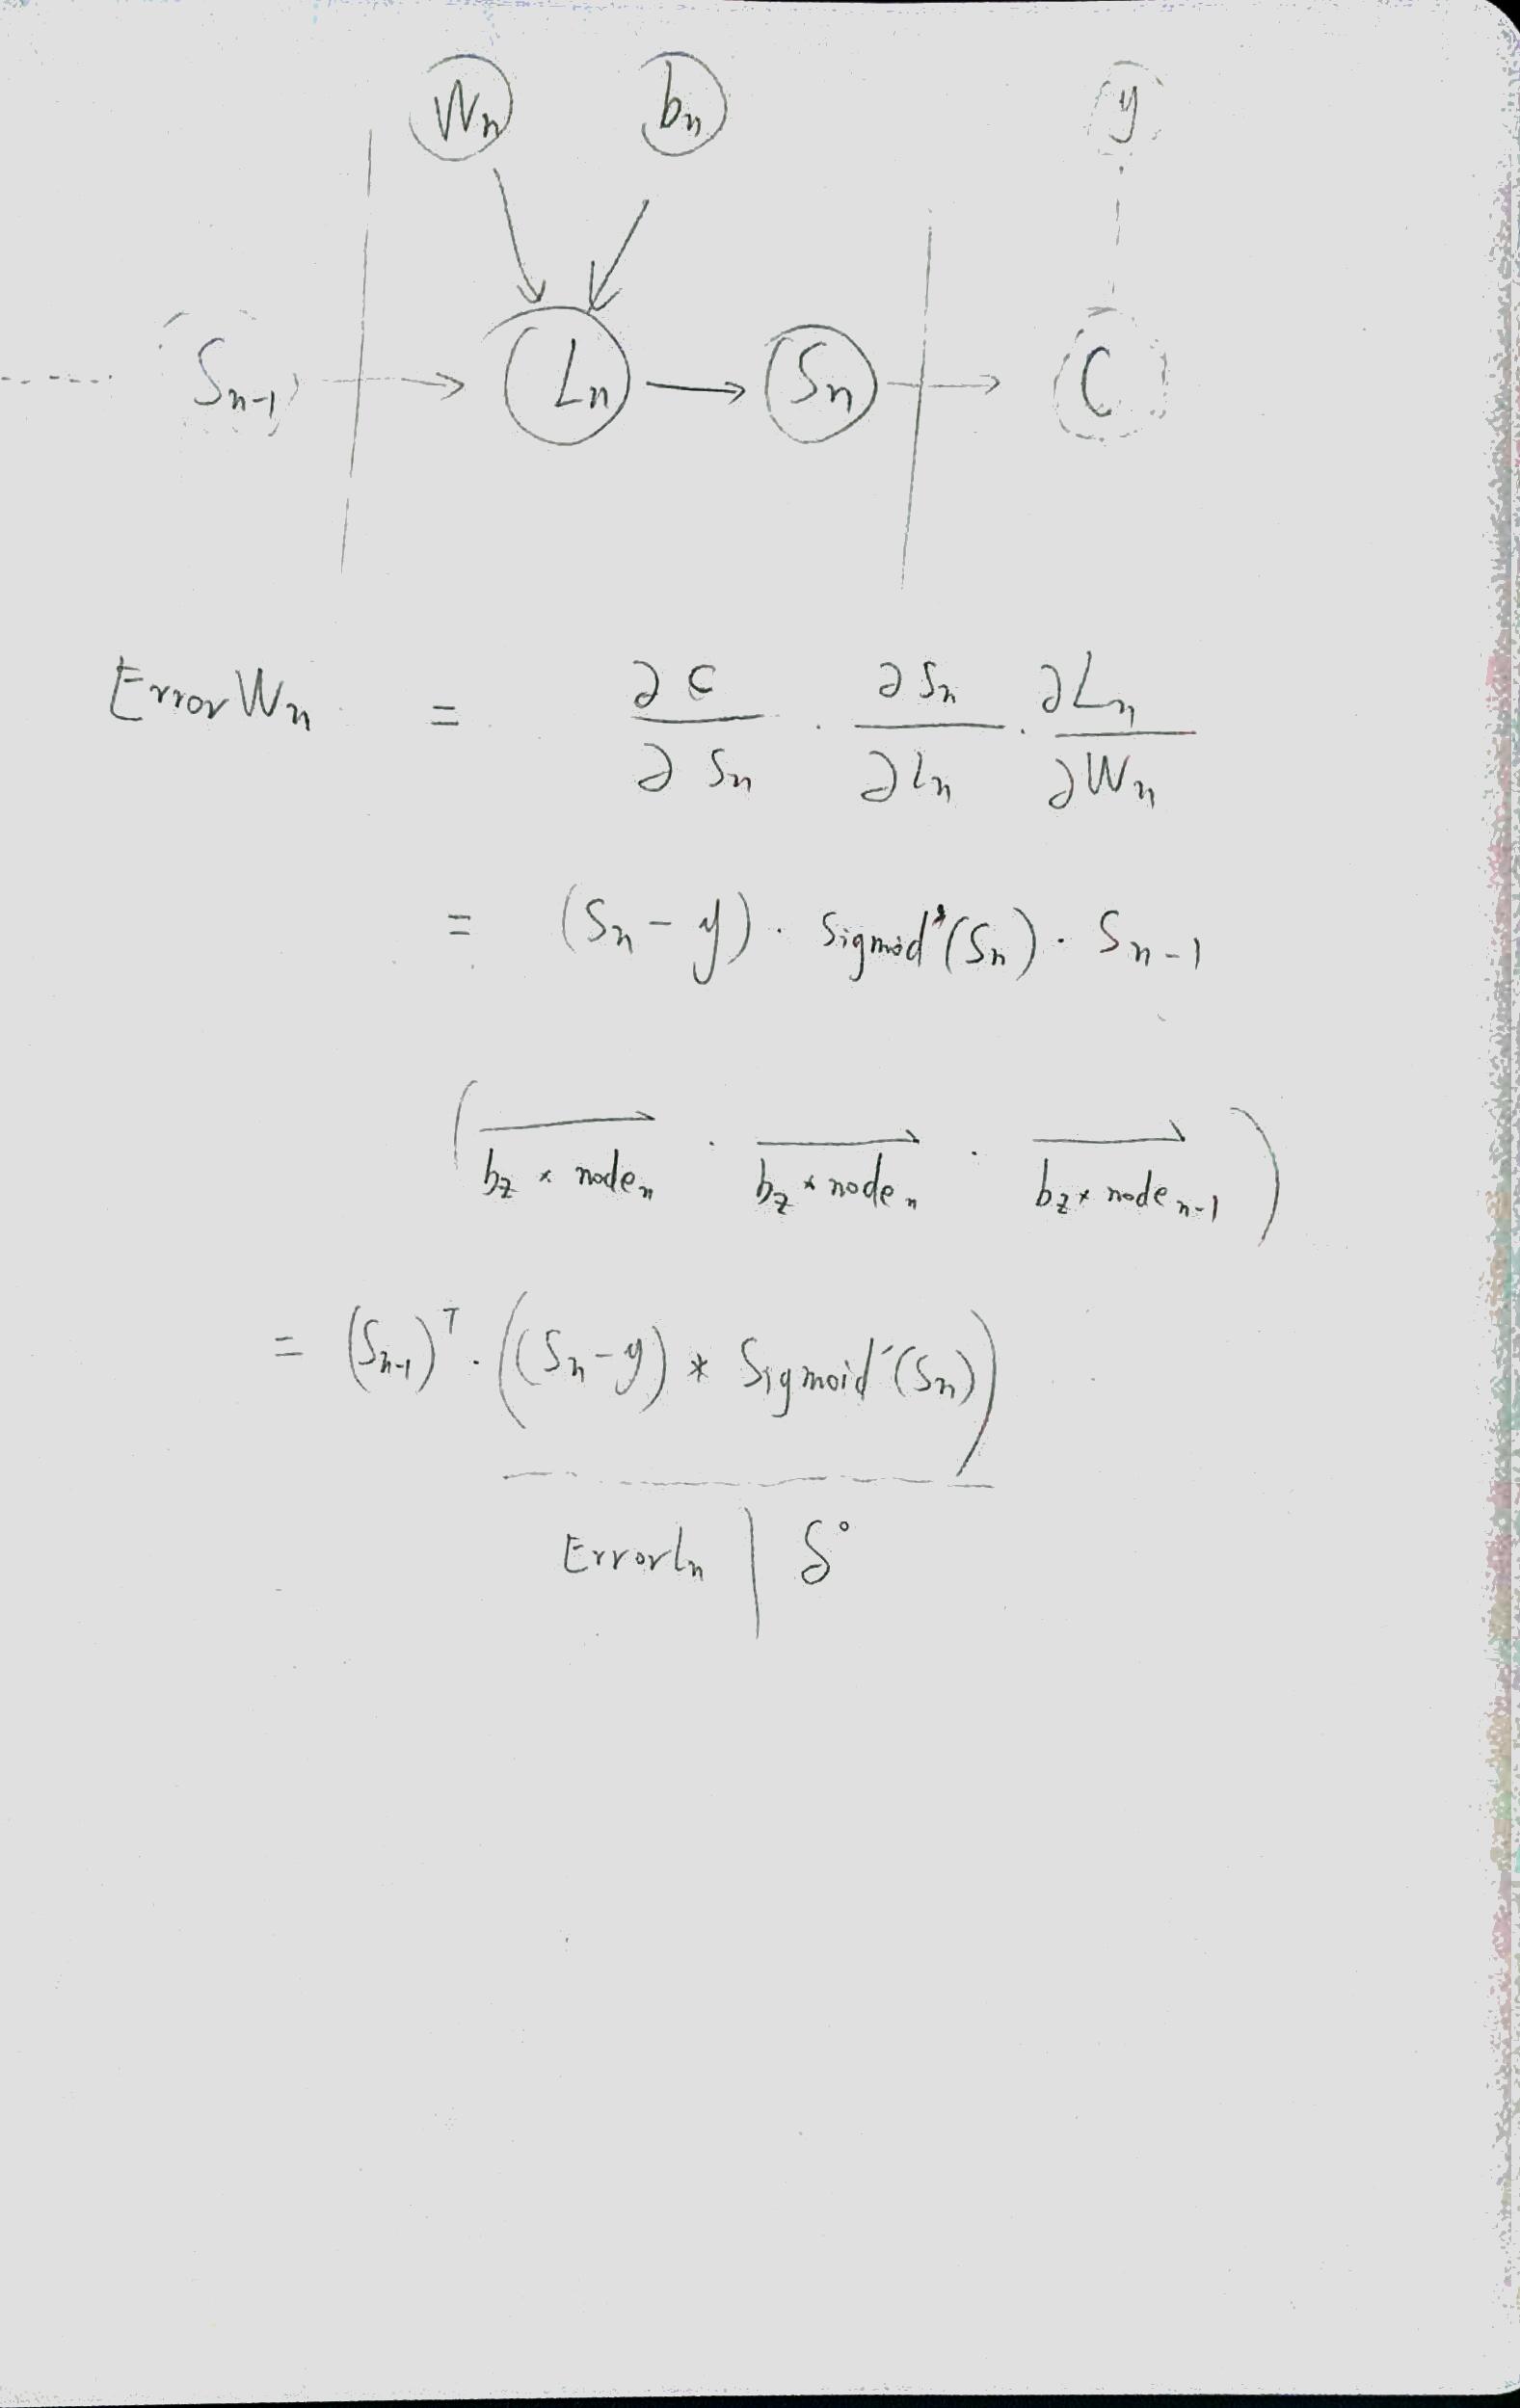 Wn bn y
Sn-1 Ln Sn C
ErrorWn = ∂C/∂Sn · ∂Sn/∂Ln · ∂Ln/∂Wn
= (Sn - y) · Sigmod'(Sn) · Sn-1
(bz × noden · bz × noden · bz × noden-1)
= (Sn-1)ᵀ · ((Sn - y) * Sigmoid'(Sn))
ErrorLn | δ°